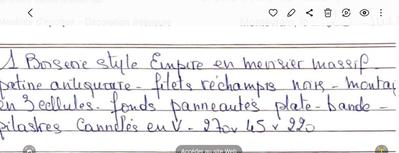 1 Boiserie style Empire en merisier massif -
patine antiquaire - filets réchampis noir - montai
en 3 cellules - fonds panneautés plate-bande -
pilastres Cannelés en V - 270 x 45 x 220
Accéder au site Web